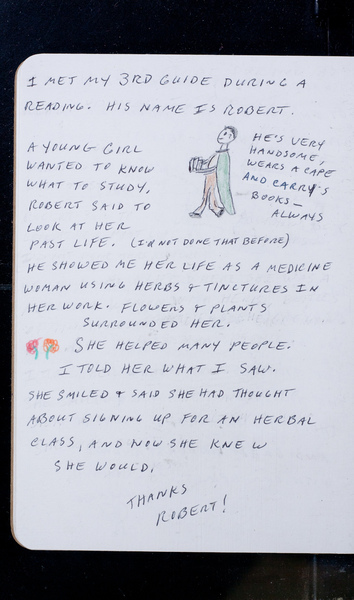 I MET MY 3RD GUIDE DURING A
READING. HIS NAME IS ROBERT.
A YOUNG GIRL
WANTED TO KNOW
WHAT TO STUDY,
ROBERT SAID TO
LOOK AT HER
PAST LIFE. (I'D NOT DONE THAT BEFORE)
HE'S VERY
HANDSOME,
WEARS A CAPE
AND CARRY'S
BOOKS—
ALWAYS
HE SHOWED ME HER LIFE AS A MEDICINE
WOMAN USING HERBS & TINCTURES IN
HER WORK. FLOWERS & PLANTS
SURROUNDED HER.
SHE HELPED MANY PEOPLE.
I TOLD HER WHAT I SAW.
SHE SMILED & SAID SHE HAD THOUGHT
ABOUT SIGNING UP FOR AN HERBAL
CLASS, AND NOW SHE KNEW
SHE WOULD.
THANKS
ROBERT!